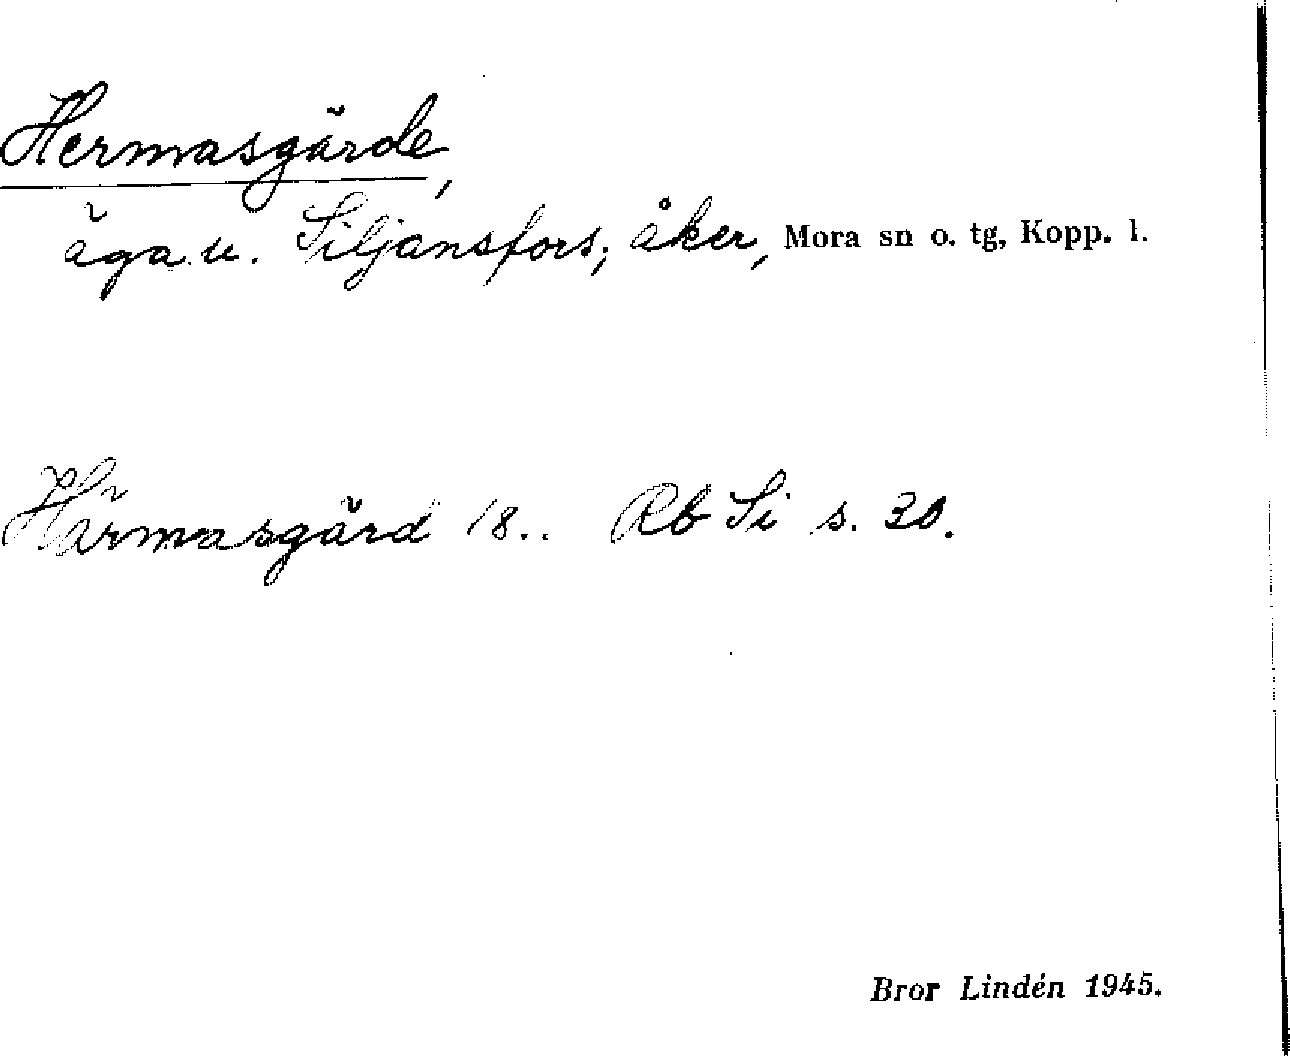 Hermasgärde,
äga u. Siljansfors; åker, Mora sn o. tg, Kopp. l.
Härmasgärd 18.. Rb Si s. 30.
Bror Lindén 1945.